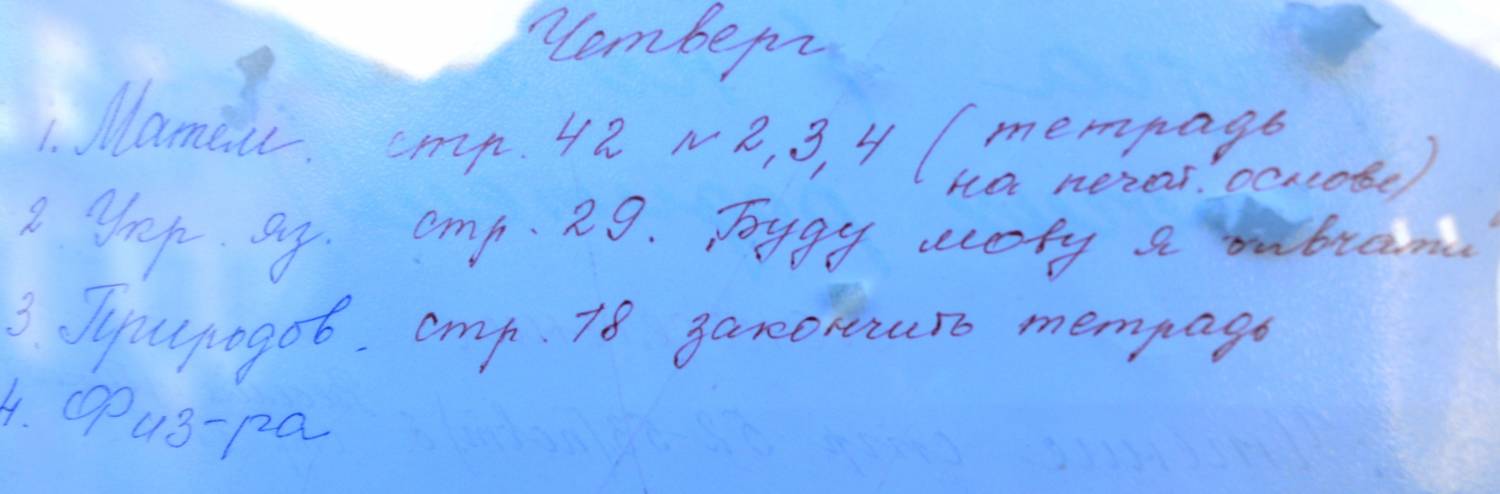 Четверг
1. Матем. стр. 42 N 2, 3, 4 (тетрадь
на печат. основе)
2. Укр. яз. стр. 29. „Буду мову я вивчати"
3. Природов. стр. 18 закончить тетрадь
4. Физ-ра